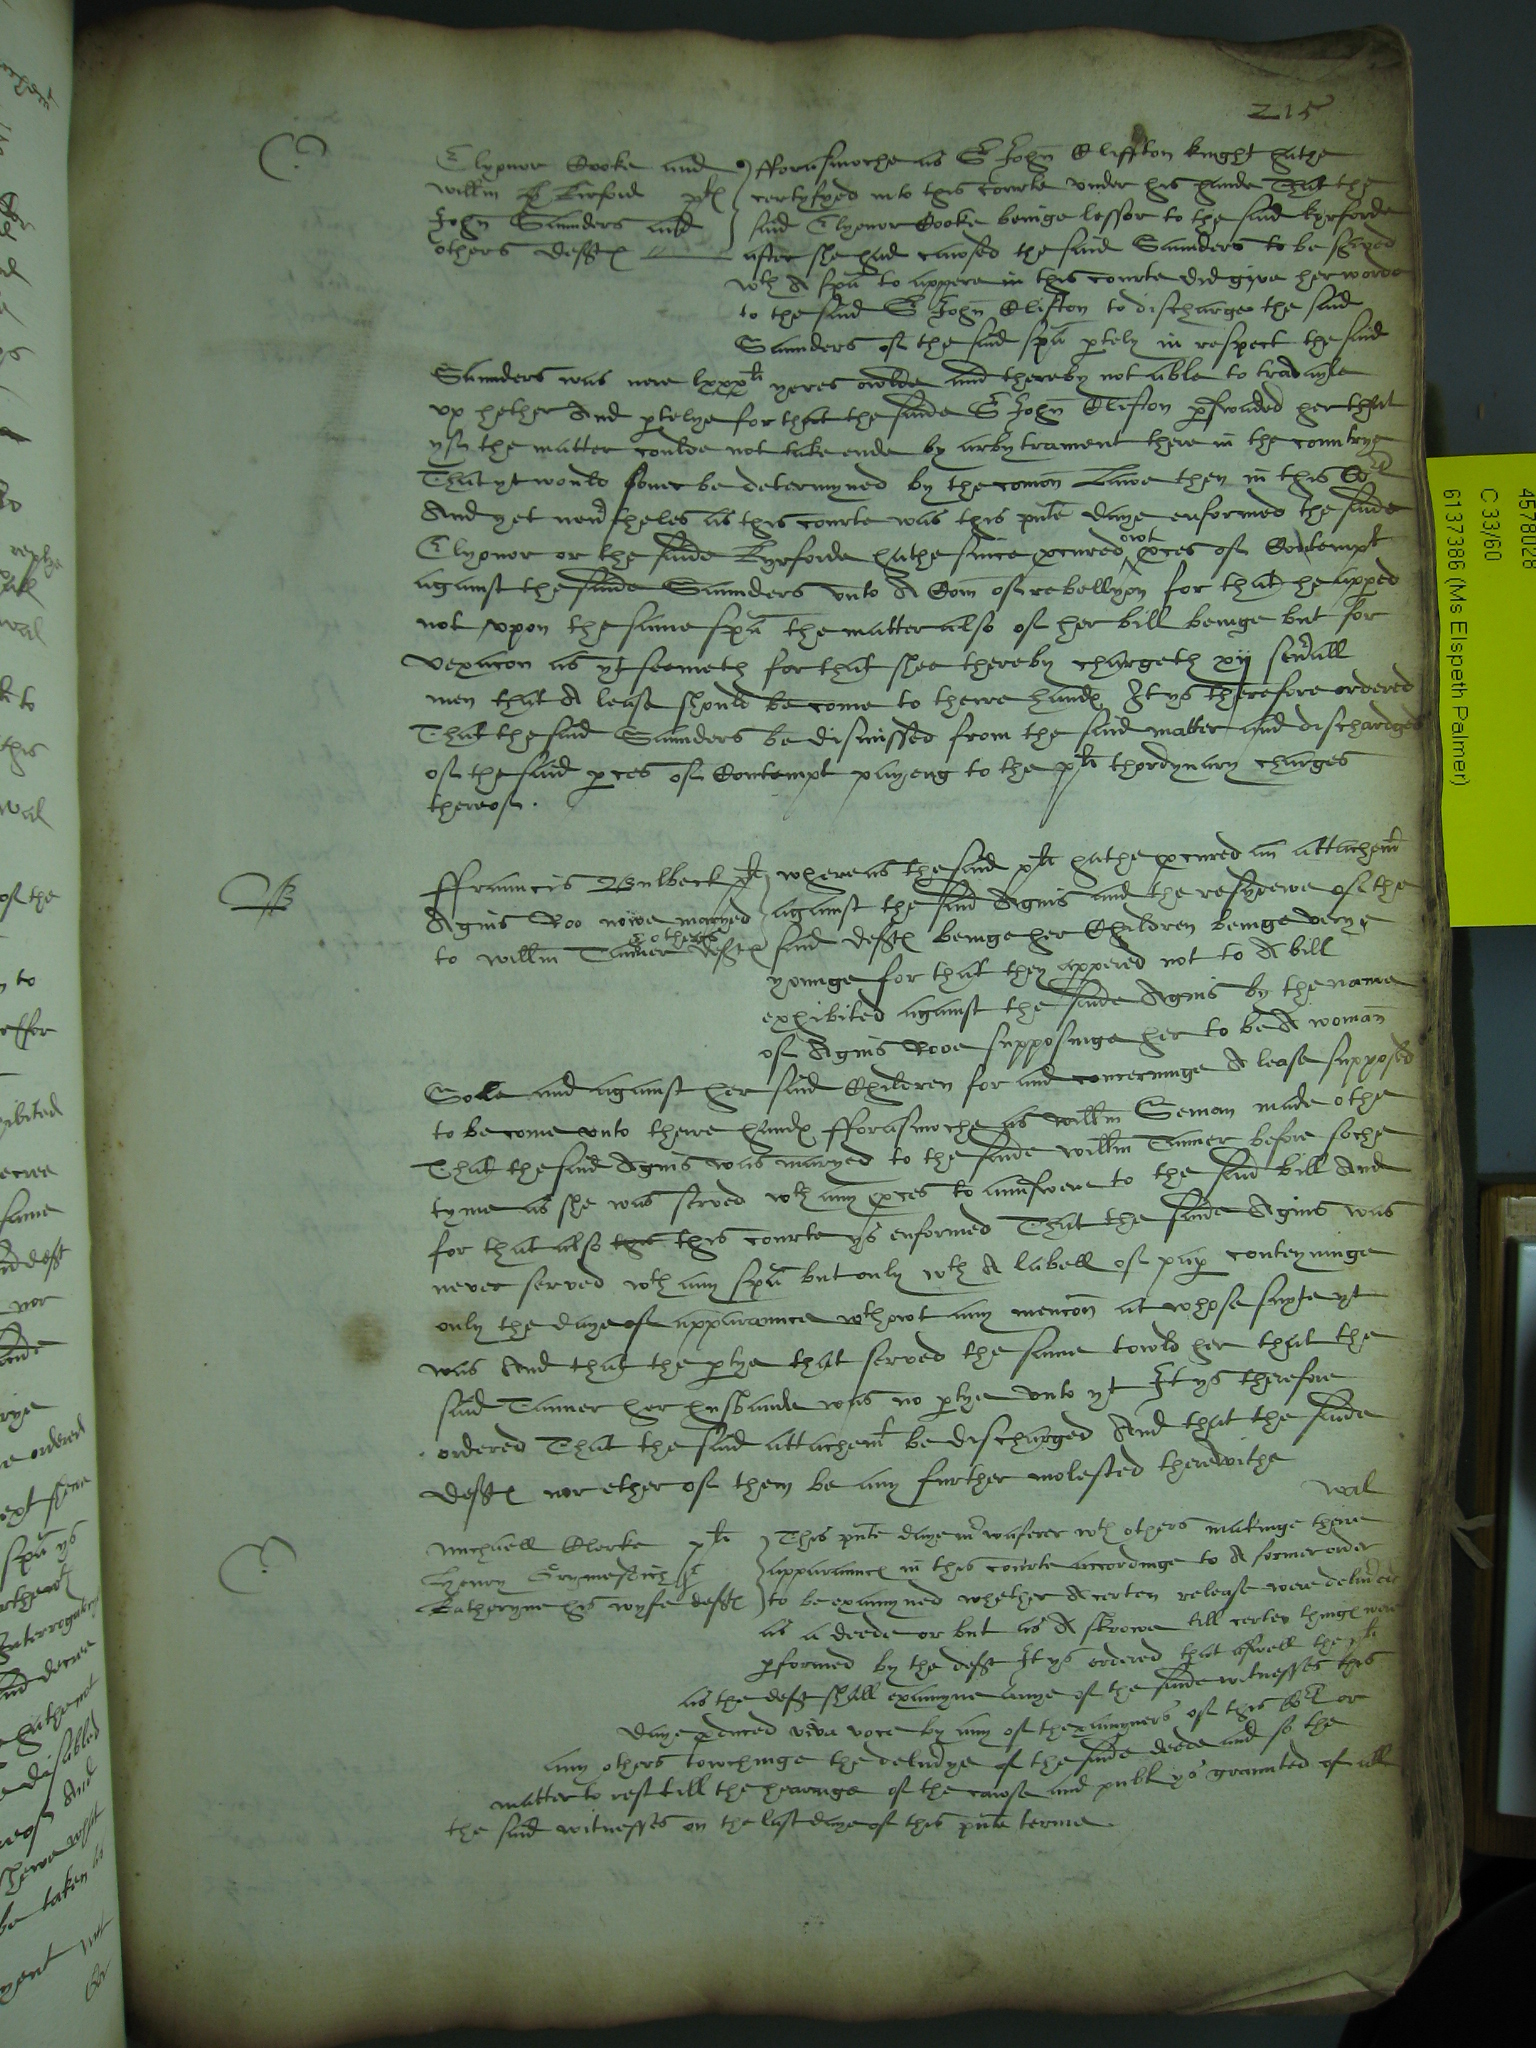 215
C
Elyonor Cooke and
willm Kirforde pltes
John Saunders and
others Defftes
fforasmoche as Sr John Cliffton knight hathe
certyfyed into this courte under his hande That the
said Elyonor Cooke beinge lessor to the said kyrforde
after she had cawsed the said Saunders to be served
wth A spa to appere in this courte did give her worde
to the said Sr John Clifton to discharge the said
Saunders of the said spa ptely in respect the said
Saunders was nere lxxxti yeres owlde and thereby not able to travayle
vp hether And ptelye for that the saide Sr John Clifton pswaded her that
yf the matter coulde not take ende by arbytrament there in the countrye
That yt would soner be determyned by the comon Lawe then in this Cort
And yet nevrtheles as this courte was this pnte daye enformed the saide
Elyonor or the saide kyrforde hathe since pcured owt pces of Contempt
against the saide Saunders unto A Com of rebellyon for that he appered
not vpon the same spa the matter also of her bill beinge but for
vexacon as yt seemeth for that shee thereby chargeth xij sevrall
men that A lease should be come to theire handes It ys therefore ordered
That the said Saunders be dismissed from the said matter and dischardged
of the said pces of Contempt payeng to the plt thordynary charges
thereof.
B
ffrauncis Bulbeck plt
Agnis Roo nowe maryed
to willm Tanner & others defftes
whereas the said plt hathe pcured an attachemt
against the said Agnis and the resydewe of the
said defftes beinge her Children beinge verye
younge for that they appered not to A bill
exhibited against the saide Agnis by the name
of Agnis Rooe supposinge her to be A woman
Sole and against her said Children for and concerninge A lease supposed
to be come unto theire handes fforasmoche as willm Seman made othe
That the said Agnis was maryed to the saide willm Tanner before soche
tyme as she was served wth any pces to aunswere to the said bill And
for that also this this courte ys enformed That the saide Agnis was
never served wth any spa but only wth A labell of pap conteyninge
only the daye of apparaunce wthowt any mencon at whose suyte yt
was And that the ptye that served the same towld her that the
said Tanner her husbande was no ptye unto yt It ys therefore
ordered That the said attachemt be discharged And that the saide
defftes nor ether of them be any further molested therewithe
wal
C
michaell Clerke plt
henry &
katheryne his wyfe defftes
This pnte daye wth others makinge theire
apparaunce in this courte accordinge to A former order
to be examyned whether A certen release were delivred
as a deede or but as A skrowe till certen thinges were
pformed by the defft It ys ordered that aswell the plt
as the defft shall examyne anye of the saide witnesses this
daye pduced viva voce by any of thexamyners of this Cort or
any others towchinge the delivrye of the saide deede and so the
matter to rest till the hearinge of the cawse and publ ys graunted of all
the said witnesses on the last daye of this pnte terme.
4578028
C 33/60
6137386 (Ms Elspeth Palmer)